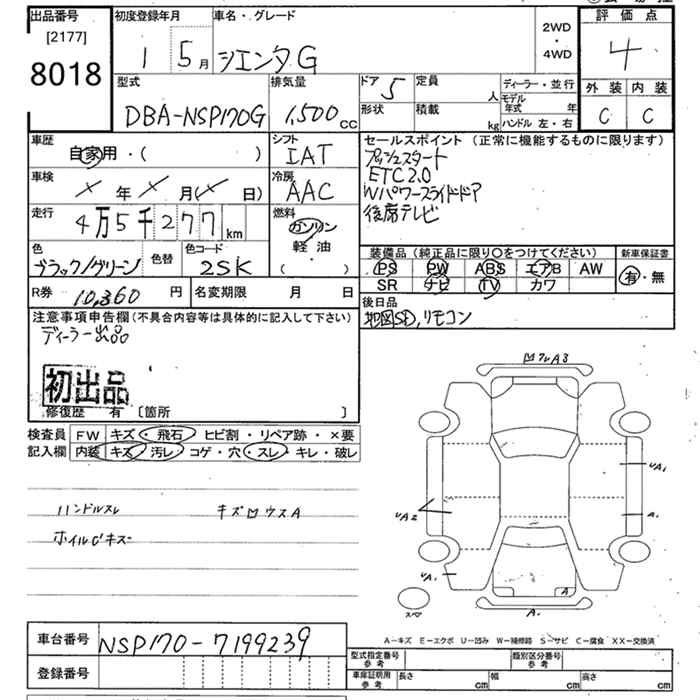 出品番号
[2177]
8018
初度登録年月
1 5月
車名・グレード
シエンタG
2WD
・
4WD
評価点
4
外装 内装
C C
型式
DBA-NSP170G
排気量
1,500cc
ドア 5
定員 人
形状
積載 kg
ディーラー・並行
モデル年式 年
ハンドル 左・右
車歴
自家用・( )
シフト
IAT
車検
× 年 × 月(× 日)
冷房
AAC
走行
4万5千277km
燃料
ガソリン
軽油
( )
色
ブラック/グリーン
色替
色コード
2SK
R券 10,360円
名変期限 月 日
セールスポイント (正常に機能するものに限ります)
プッシュスタート
ETC2.0
Wパワースライドドア
後席テレビ
装備品 (純正品に限り○をつけてください)
PS PW ABS エアB AW
SR ナビ TV カワ
新車保証書
有・無
後日品
地図SD,リモコン
注意事項申告欄(不具合内容等は具体的に記入して下さい)
ディーラー出品
初出品
修復歴 有 [箇所 ]
検査員
記入欄
FW キズ・飛石・ヒビ割・リペア跡・×要
内装 キズ・汚レ・コゲ・穴・スレ・キレ・破レ
ハンドルスレ
ホイルCキズ
A1
A2
A.
A
スペ
A.
A-キズ E-エクボ U-凹み W-補修跡 S-サビ C-腐食 XX-交換済
車台番号
NSP170-7199239
登録番号
型式指定番号
参考
類別区分番号
参考
車庫証明用
参考
長さ cm
幅 cm
高さ cm